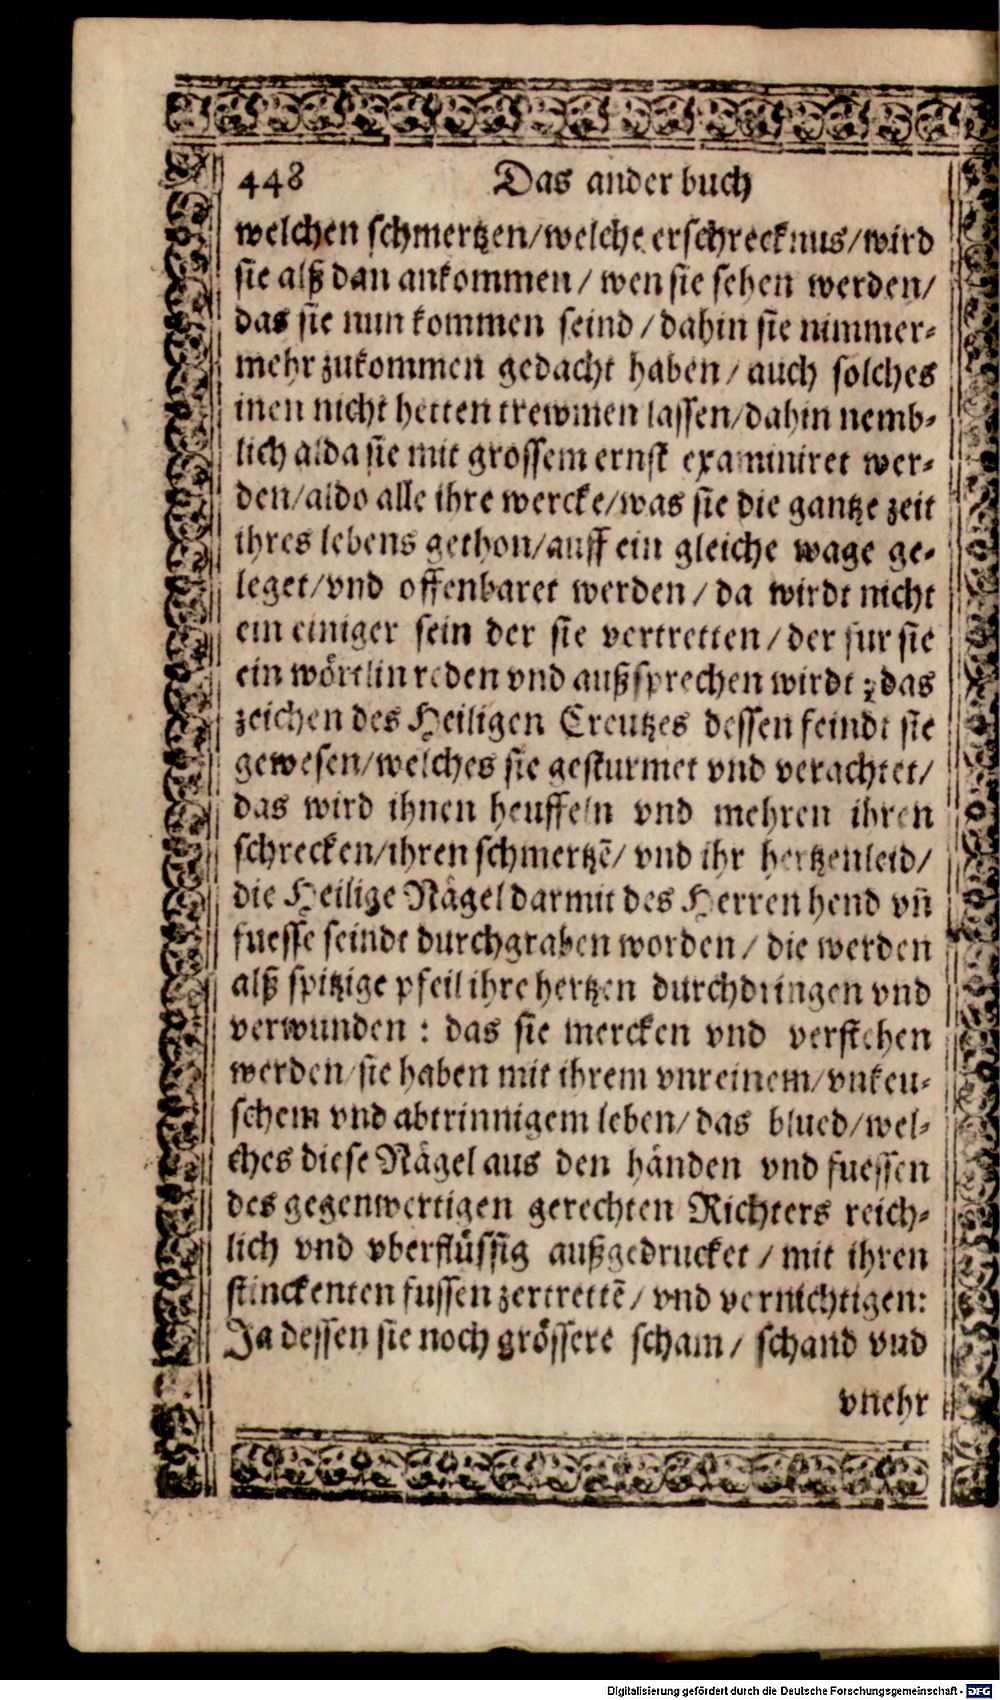 448 Das ander buch
welchen schmertzen/welche erschrecknus/wird
sie alß dan ankommen/ wen sie sehen werden/
das sie nun kommen seind/dahin sie nimmer-
mehr zukommen gedacht haben/ auch solches
inen nicht hetten trewmen lassen/dahin nemb-
lich alda sie mit grossem ernst examiniret wer-
den/aldo alle ihre wercke/was sie die gantze zeit
ihres lebens gethon/auff ein gleiche wage ge-
leget/vnd offenbaret werden/ da wirdt nicht
ein einiger sein der sie vertretten/der fur sie
ein wörtlin reden vnd außsprechen wirdt : das
zeichen des Heiligen Creutzes dessen feindt sie
gewesen/welches sie gesturmet vnd verachtet/
das wird ihnen heuffeln vnd mehren ihren
schrecken/ihren schmertzē/ vnd ihr hertzenleid/
die Heilige Nägel darmit des Herren hend vn̄
fuesse seindt durchgraben worden/ die werden
alß spitzige pfeil ihre hertzen durchdringen vnd
verwunden : das sie mercken vnd verstehen
werden/sie haben mit ihrem vnreinem/vnkeu-
schem vnd abtrinnigem leben/das blued/wel-
ches diese Nägel aus den händen vnd fuessen
des gegenwertigen gerechten Richters reich-
lich vnd vberflüssig außgedrucket / mit ihren
stinckenten fussen zertrettē/ vnd vernichtigen:
Ja dessen sie noch grössere scham/ schand vnd
vnehr
Digitalisierung gefördert durch die Deutsche Forschungsgemeinschaft - DFG